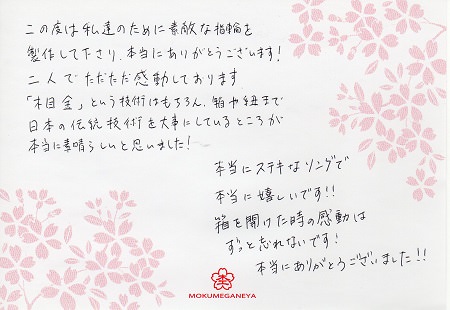 この度は私達のために素敵な指輪を
製作して下さり、本当にありがとうございます!
二人でただただ感動しております
「木目金」という技術はもちろん、箱や紐まで
日本の伝統技術を大事にしているところが
本当に素晴らしいと思いました!
本当にステキなリングで
本当に嬉しいです!!
箱を開けた時の感動は
ずっと忘れないです!
本当にありがとうございました!!
MOKUMEGANEYA